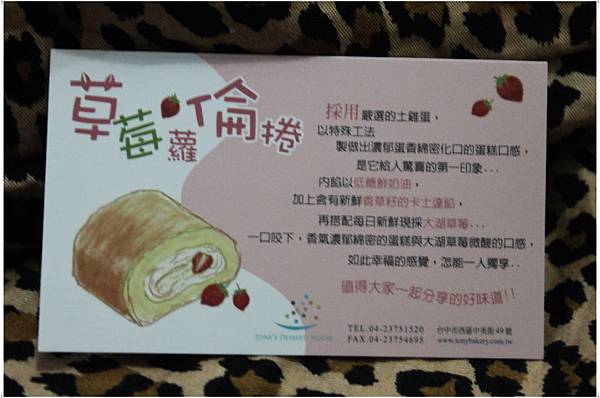 草莓蘿倫捲
採用嚴選的土雞蛋，
以特殊工法
製做出濃郁蛋香綿密化口的蛋糕口感，
是它給人驚喜的第一印象...
內餡以低糖鮮奶油，
加上含有新鮮香草籽的卡士達餡，
再搭配每日新鮮現採大湖草莓...
一口咬下，香氣濃郁綿密的蛋糕與大湖草莓微酸的口感，
如此幸福的感覺，怎能一人獨享..
值得大家一起分享的好味道!!
TONY'S DESSERT HOUSE
TEL.04-23751520 台中市西區中美街49號
FAX.04-23754695 www.tonybakery.com.tw